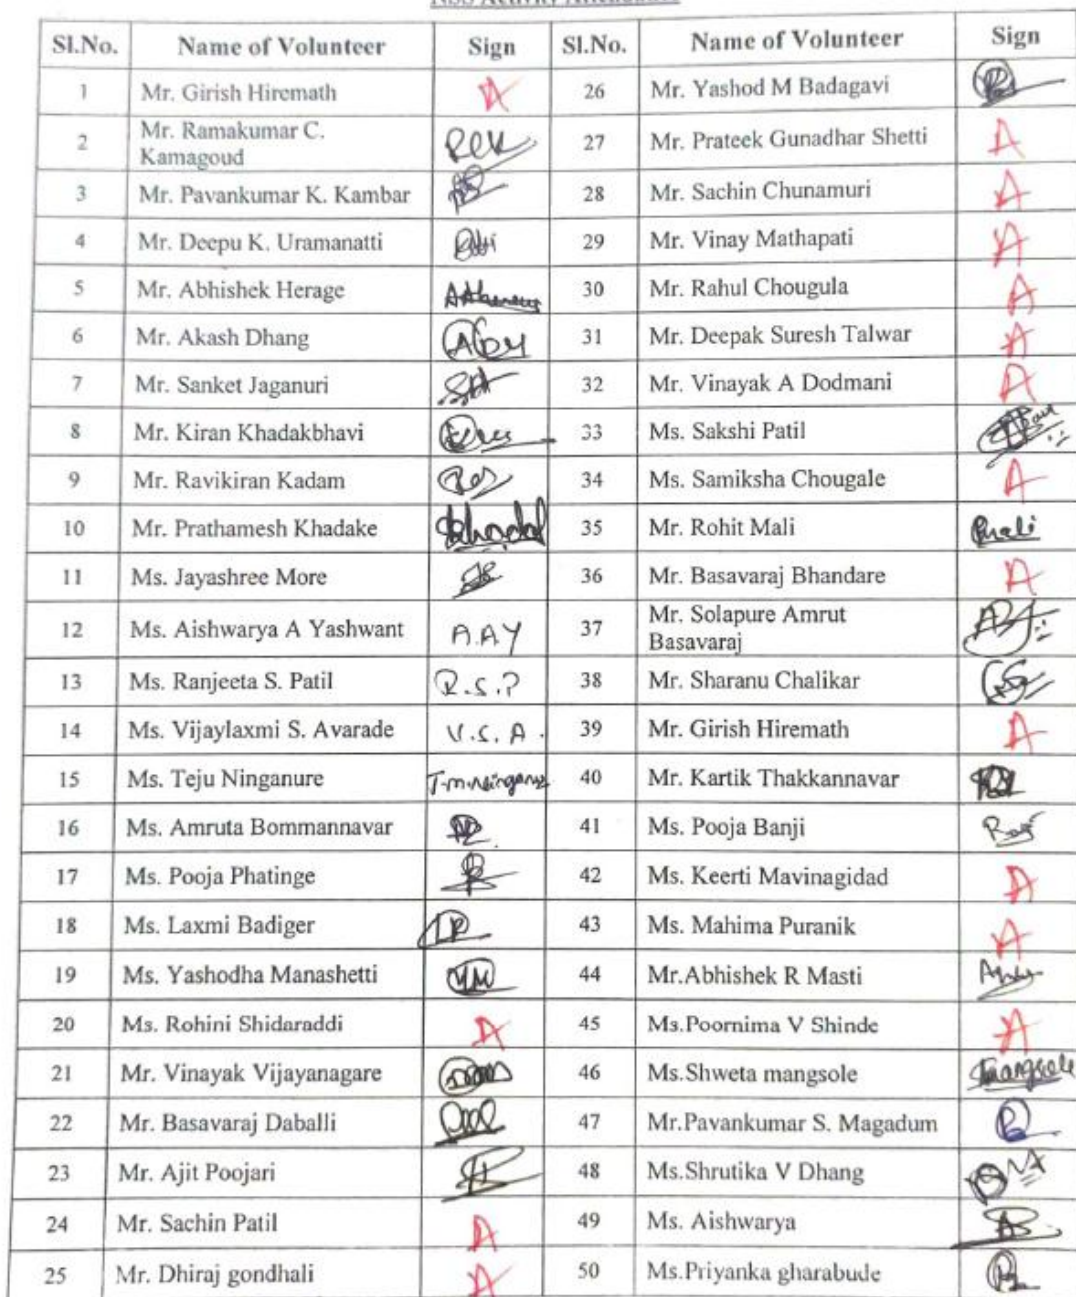 NSS Activity Attendance
Sl.No. Name of Volunteer Sign Sl.No. Name of Volunteer Sign
1 Mr. Girish Hiremath A 26 Mr. Yashod M Badagavi
2 Mr. Ramakumar C. Kamagoud 27 Mr. Prateek Gunadhar Shetti A
3 Mr. Pavankumar K. Kambar 28 Mr. Sachin Chunamuri A
4 Mr. Deepu K. Uramanatti 29 Mr. Vinay Mathapati A
5 Mr. Abhishek Herage 30 Mr. Rahul Chougula A
6 Mr. Akash Dhang 31 Mr. Deepak Suresh Talwar A
7 Mr. Sanket Jaganuri 32 Mr. Vinayak A Dodmani A
8 Mr. Kiran Khadakbhavi 33 Ms. Sakshi Patil
9 Mr. Ravikiran Kadam 34 Ms. Samiksha Chougale A
10 Mr. Prathamesh Khadake 35 Mr. Rohit Mali
11 Ms. Jayashree More 36 Mr. Basavaraj Bhandare A
12 Ms. Aishwarya A Yashwant A.AY 37 Mr. Solapure Amrut Basavaraj
13 Ms. Ranjeeta S. Patil R.S.P 38 Mr. Sharanu Chalikar
14 Ms. Vijaylaxmi S. Avarade V.S.A. 39 Mr. Girish Hiremath A
15 Ms. Teju Ninganure 40 Mr. Kartik Thakkannavar
16 Ms. Amruta Bommannavar 41 Ms. Pooja Banji
17 Ms. Pooja Phatinge 42 Ms. Keerti Mavinagidad A
18 Ms. Laxmi Badiger 43 Ms. Mahima Puranik A
19 Ms. Yashodha Manashetti 44 Mr.Abhishek R Masti
20 Ms. Rohini Shidaraddi A 45 Ms.Poornima V Shinde A
21 Mr. Vinayak Vijayanagare 46 Ms.Shweta mangsole mangsole
22 Mr. Basavaraj Daballi 47 Mr.Pavankumar S. Magadum
23 Mr. Ajit Poojari 48 Ms.Shrutika V Dhang
24 Mr. Sachin Patil A 49 Ms. Aishwarya
25 Mr. Dhiraj gondhali A 50 Ms.Priyanka gharabude